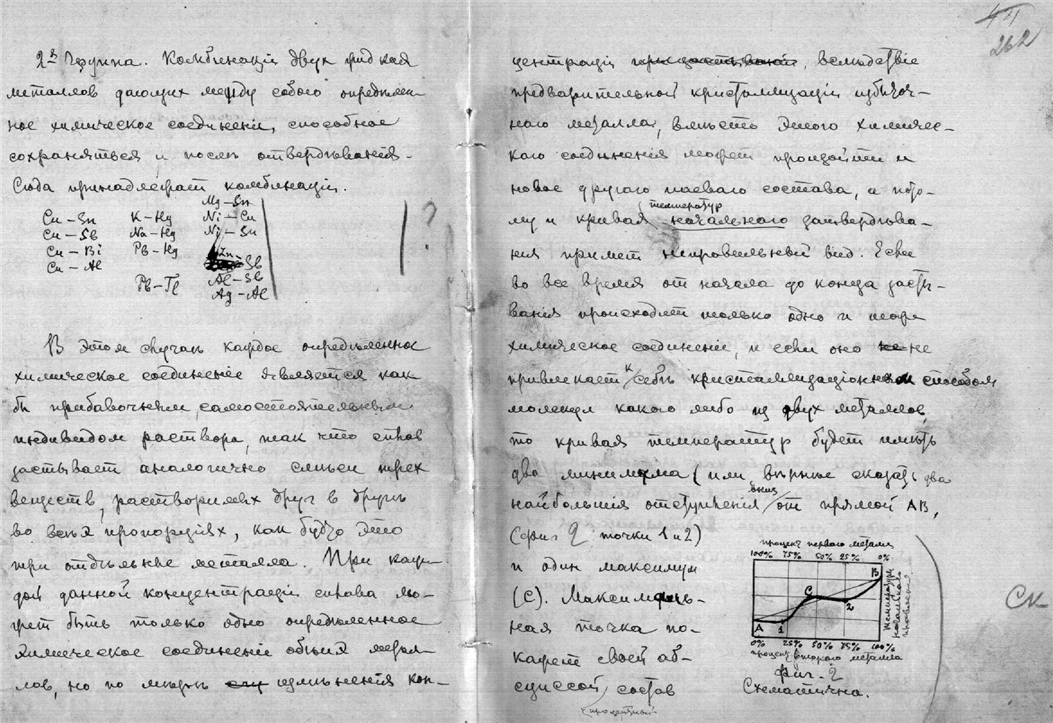 2я Группа. Комбинацiи двух жидких
металлов дающих между собою определен-
ное химическое соединенiе, способное
сохраняться и послѣ отвердѣванiя.
Сюда принадлежат комбинацiи.
Cu – Sn K – Hg Mg – Sn
Cu – Sb Na – Hg Ni – Cu
Cu – Bi Pb – Hg Ni – Sn
Cu – Al Sb
Pb – Tl Al – Sb
Ag – Al
?
В этом случаѣ каждое опредѣленное
химическое соединенiе является как
бы прибавочным самостоятельным
индивидом раствора, так что сплав
застывает аналогично смѣси трех
веществ, растворимых друг в другѣ
во всѣх пропорцiях, как будто это
три отдѣльные металла. При каж-
дой данной концентрацiи сплава мо-
жет быть только одно определенное
химическое соединенiе обоих метал-
лов, но по мѣрѣ измѣненiя кон-
44
262
центрацiи, вслѣдствiе
предварительной кристаллизацiи избыточ-
ного металла, вмѣсто этого химичес-
кого соединенiя может произойти и
новое другого паевого состава, а пото-
му и кривая температур начального затвердѣва-
нiя примет неправильный вид. Если
во все время от начала до конца засты-
ванiя происходит только одно и тоже
химическое соединенiе, и если оно не
привлекает к себѣ кристаллизацiонным способом
молекул какого либо из двух металлов
то кривая температур будет имѣть
два минимума (или вѣрнѣе сказать два
наибольшiя отступленiя вниз от прямой АВ,
(фиг 2 точки 1 и 2)
и один максимум
(С). Максималь-
ная точка по-
кажет своей аб-
сциссой состав
процент первого металла
100% 75% 50% 25% 0%
A 1 C 2 B
Температуры начального плавления
0% 25% 50% 75% 100%
процент второго металла
Фиг. 2
Схематична.
Ск-